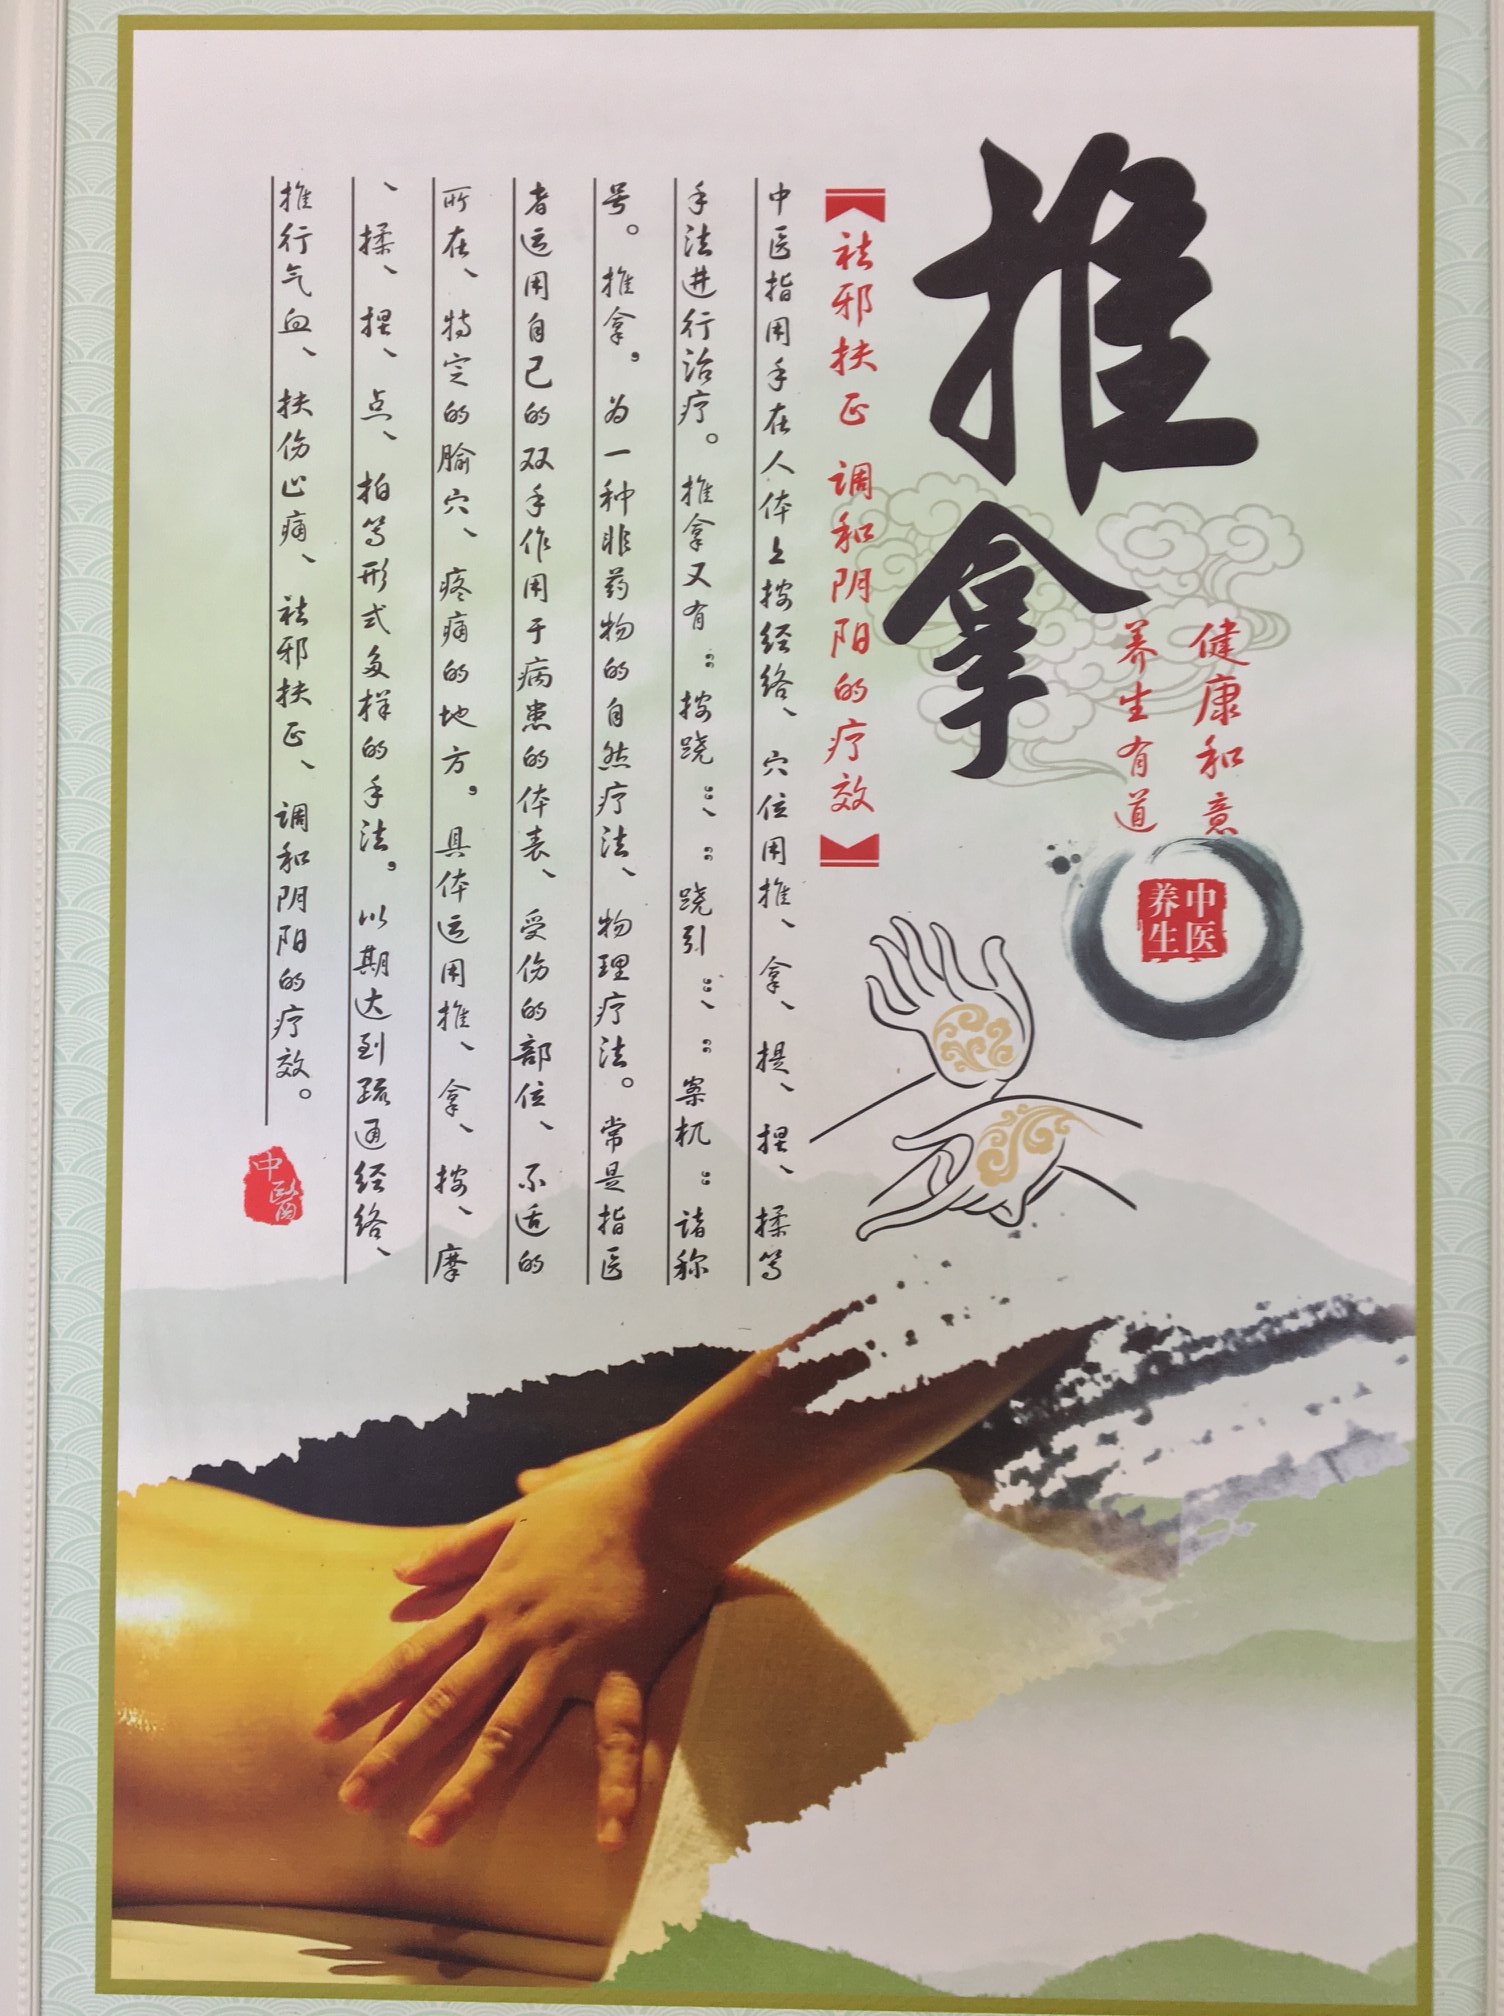 推拿
健康和意
养生有道
中医
养生
【祛邪扶正 调和阴阳的疗效】
中医指用手在人体上按经络、穴位用推、拿、提、捏、揉等
手法进行治疗。推拿又有：按跷：、：跷引：、：案杌：诸称
号。推拿，为一种非药物的自然疗法、物理疗法。常是指医
者运用自己的双手作用于病患的体表、受伤的部位、不适的
所在、特定的腧穴、疼痛的地方，具体运用推、拿、按、摩
、揉、捏、点、拍等形式多样的手法，以期达到疏通经络、
推行气血、扶伤止痛、祛邪扶正、调和阴阳的疗效。
中醫